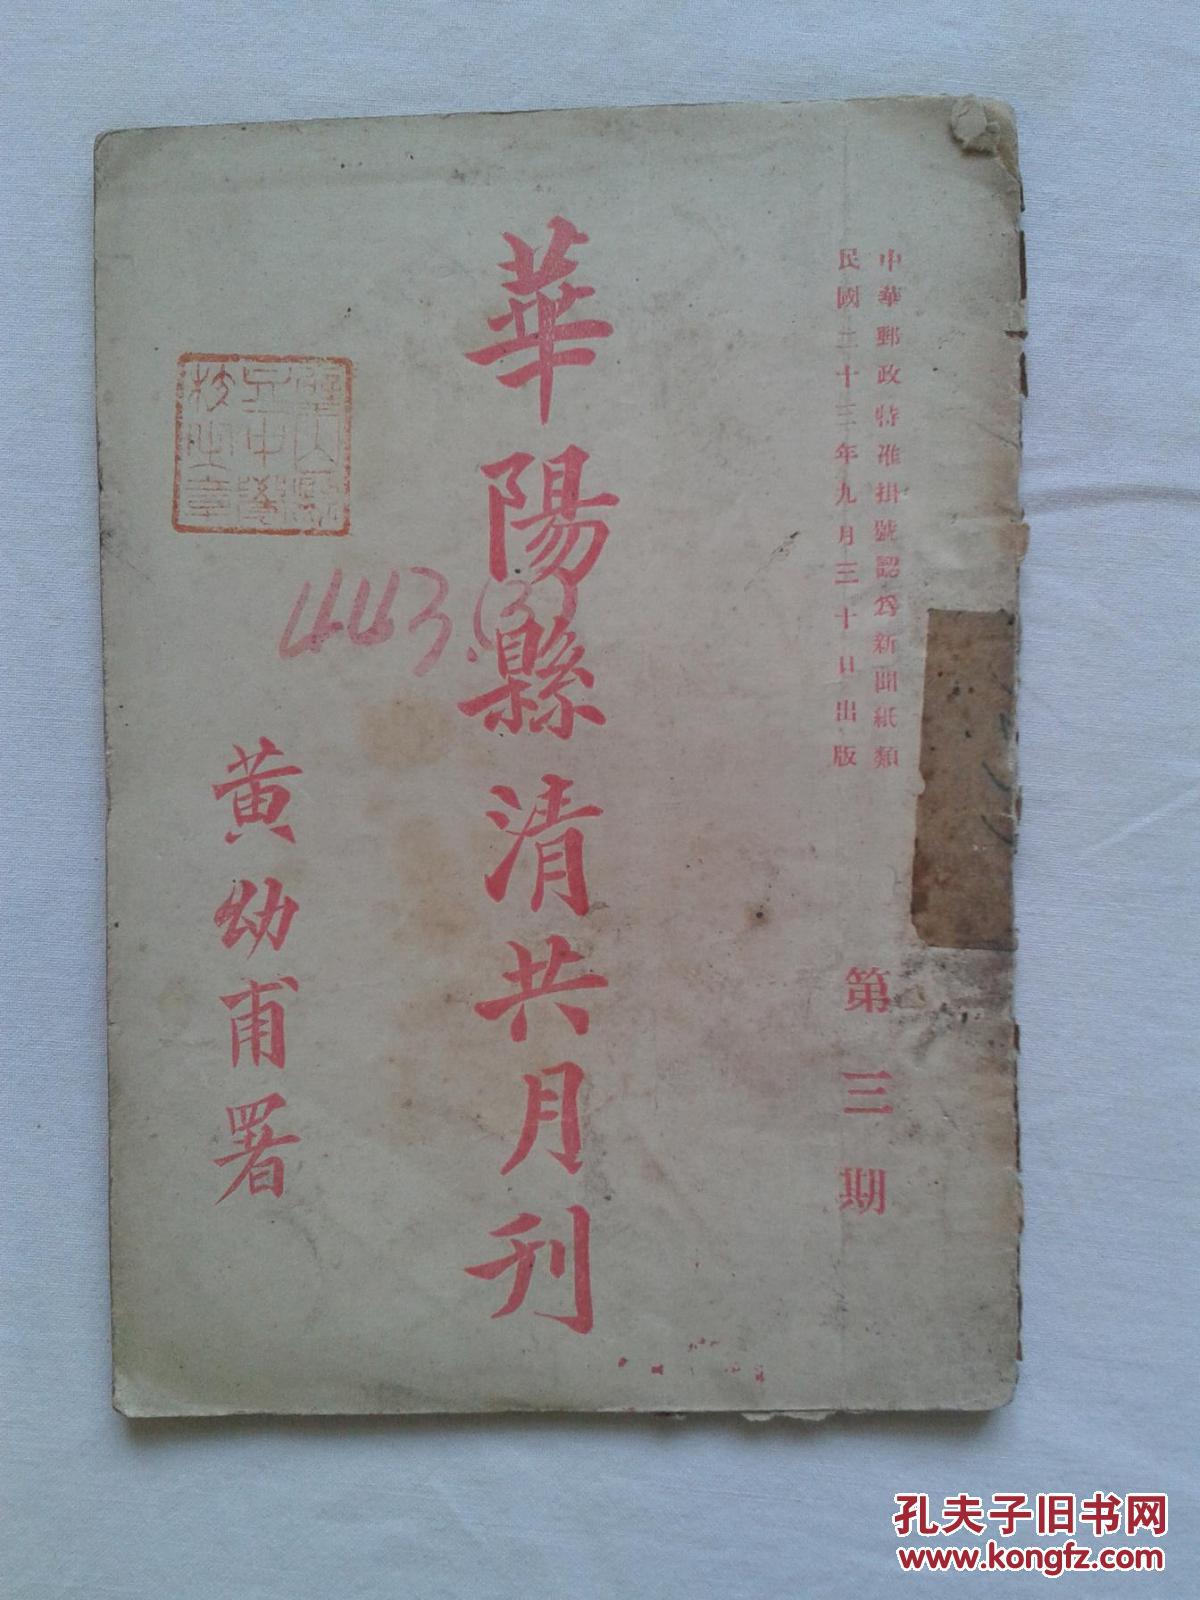 中華郵政特准掛號認爲新聞紙類
民國二十三年九月三十日出版
第三期
華陽縣清共月刊
黃幼甫署
443.(3)
孔夫子旧书网
www.kongfz.com